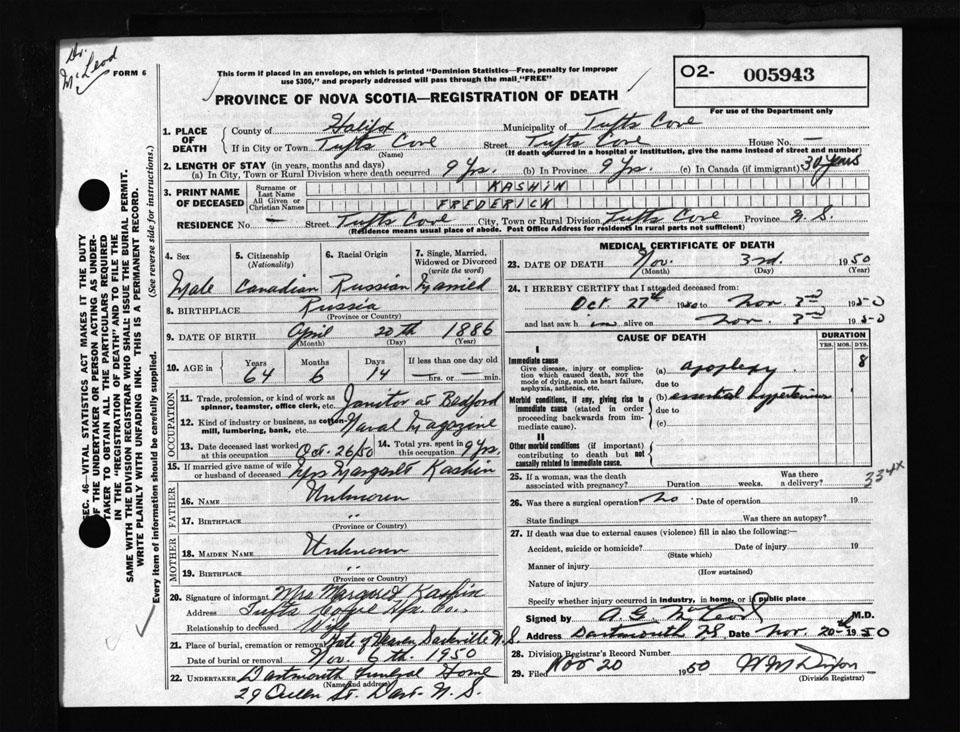 Dr. McLeod
FORM 6
This form if placed in an envelope, on which is printed "Dominion Statistics—Free, penalty for improper
use $300," and properly addressed will pass through the mail "FREE"
O2- 005943
For use of the Department only
PROVINCE OF NOVA SCOTIA—REGISTRATION OF DEATH
1. PLACE OF DEATH County of Halifx Municipality of Tufts Cove
If in City or Town Tufts Cove Street Tufts Cove House No. —
(Name) (If death occurred in a hospital or institution, give the name instead of street and number)
2. LENGTH OF STAY (in years, months and days)
(a) In City, Town or Rural Division where death occurred 9 Yrs. (b) In Province 9 Yrs. (c) In Canada (if immigrant) 30 years
3. PRINT NAME OF DECEASED Surname or Last Name KASHIN
All Given or Christian Names FREDERICK
RESIDENCE No. — Street Tufts Cove City, Town or Rural Division Tufts Cove Province N.S.
(Residence means usual place of abode. Post Office Address for residents in rural parts not sufficient)
4. Sex 5. Citizenship (Nationality) 6. Racial Origin 7. Single, Married, Widowed or Divorced (write the word)
Male Canadian Russian Married
8. BIRTHPLACE Russia
(Province or Country)
9. DATE OF BIRTH April 20th 1886
(Month) (Day) (Year)
10. AGE in Years Months Days If less than one day old
64 6 14 — hrs. or — min.
OCCUPATION
11. Trade, profession, or kind of work as spinner, teamster, office clerk, etc. Janitor at Bedford
12. Kind of industry or business, as cotton-mill, lumbering, bank, etc. Naval Magazine
13. Date deceased last worked at this occupation Oct. 26/50 14. Total yrs. spent in this occupation 9 yrs.
15. If married give name of wife or husband of deceased Mrs Margaret Kashin
FATHER
16. NAME Unknown
17. BIRTHPLACE "
(Province or Country)
MOTHER
18. MAIDEN NAME Unknown
19. BIRTHPLACE "
(Province or Country)
20. Signature of informant Mrs Margaret Kashin
Address Tufts Cove Hfx. Co.
Relationship to deceased Wife
21. Place of burial, cremation or removal Gate of Heaven Sackville N.S.
Date of burial or removal Nov. 6th. 1950
22. UNDERTAKER Dartmouth Funeral Home
(Name and address)
29 Queen St. Dart. N.S.
MEDICAL CERTIFICATE OF DEATH
23. DATE OF DEATH Nov. 3rd. 1950
(Month) (Day) (Year)
24. I HEREBY CERTIFY that I attended deceased from:
Oct 27th 1950 to Nov. 3rd 1950
and last saw h im alive on Nov. 3rd 1950
CAUSE OF DEATH DURATION
YRS. MOS. DYS.
I
Immediate cause
Give disease, injury or complication which caused death, NOT the mode of dying, such as heart failure, asphyxia, asthenia, etc.
(a) apoplexy 8
due to
Morbid conditions, if any, giving rise to immediate cause (stated in order proceeding backwards from immediate cause).
(b) essential hypertension
due to
(c)
II
Other morbid conditions (if important) contributing to death but not causally related to immediate cause.
334x
25. If a woman, was the death associated with pregnancy? Duration weeks. Was there a delivery?
26. Was there a surgical operation? No Date of operation 19
State findings Was there an autopsy?
27. If death was due to external causes (violence) fill in also the following:
Accident, suicide or homicide? Date of injury 19
(State which)
Manner of injury
(How sustained)
Nature of injury
Specify whether injury occurred in industry, in home, or in public place
Signed by A G McLeod M.D.
Address Dartmouth NS Date Nov. 20th 1950
28. Division Registrar's Record Number
29. Filed Nov 20 1950 W M Dixon
(Division Registrar)
SEC. 46—VITAL STATISTICS ACT MAKES IT THE DUTY
OF THE UNDERTAKER OR PERSON ACTING AS UNDER-
TAKER TO OBTAIN ALL THE PARTICULARS REQUIRED
IN THE "REGISTRATION OF DEATH" AND TO FILE THE
SAME WITH THE DIVISION REGISTRAR WHO SHALL ISSUE THE BURIAL PERMIT.
WRITE PLAINLY WITH UNFADING INK. THIS IS A PERMANENT RECORD.
Every item of information should be carefully supplied. (See reverse side for instructions.)